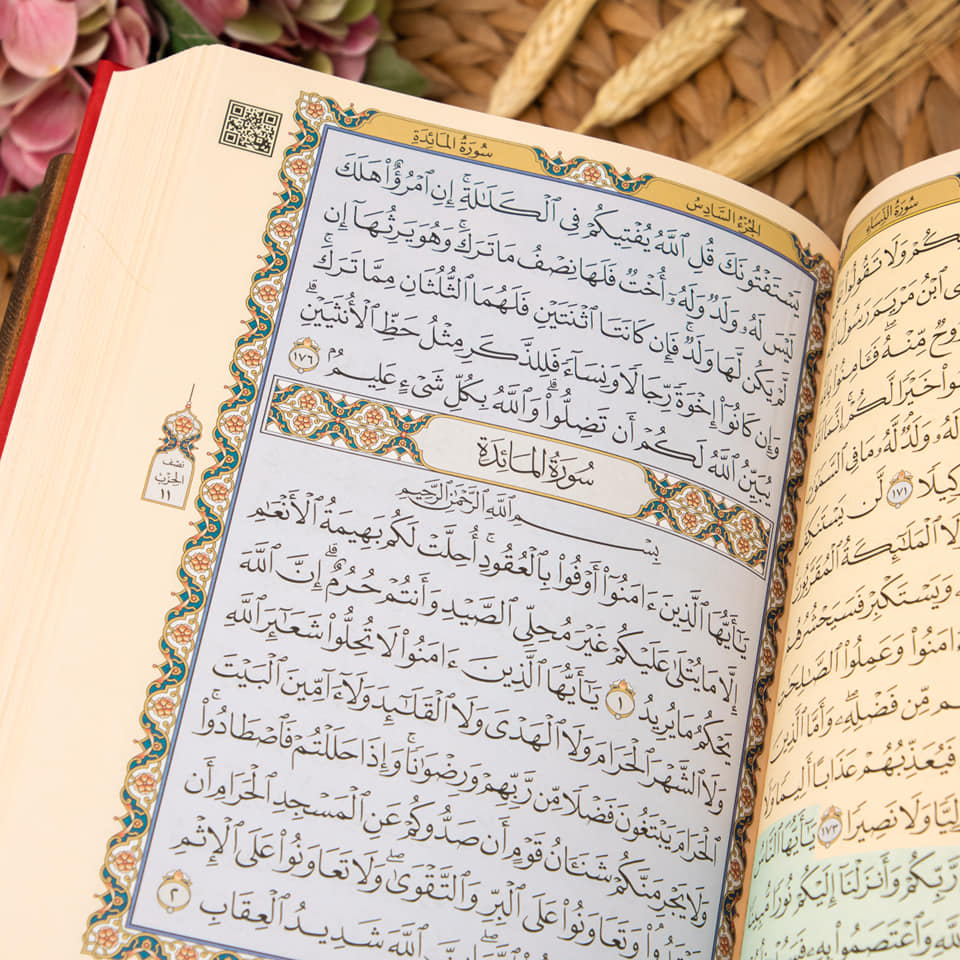 سُورَةُ النِّسَاءِ
وَلَا تَقُولُوا۟
ٱبْنُ مَرْيَمَ رَسُولُ
مِّنْهُ ۖ فَـَٔامِنُوا۟
خَيْرًا لَّكُمْ ۚ إِنَّمَا
لَهُۥ وَلَدٌ ۘ لَّهُۥ مَا فِى ٱلسَّمَـٰوَٰتِ
١٧١ لَّن يَسْتَنكِفَ
ٱلْمَلَـٰٓئِكَةُ ٱلْمُقَرَّبُونَ
وَيَسْتَكْبِرْ فَسَيَحْشُرُهُمْ
ءَامَنُوا۟ وَعَمِلُوا۟ ٱلصَّـٰلِحَـٰتِ
مِّن فَضْلِهِۦ ۖ وَأَمَّا ٱلَّذِينَ
فَيُعَذِّبُهُمْ عَذَابًا أَلِيمًا وَلَا
وَلَا نَصِيرًا ١٧٣ يَـٰٓأَيُّهَا ٱلنَّاسُ
رَّبِّكُمْ وَأَنزَلْنَآ إِلَيْكُمْ نُورًا مُّبِينًا
وَٱعْتَصَمُوا۟ بِهِۦ
الجُزْءُ السَّادِسُ سُورَةُ المَائِدَةِ
يَسْتَفْتُونَكَ قُلِ ٱللَّهُ يُفْتِيكُمْ فِى ٱلْكَلَـٰلَةِ ۚ إِنِ ٱمْرُؤٌا۟ هَلَكَ
لَيْسَ لَهُۥ وَلَدٌ وَلَهُۥٓ أُخْتٌ فَلَهَا نِصْفُ مَا تَرَكَ ۚ وَهُوَ يَرِثُهَآ إِن
لَّمْ يَكُن لَّهَا وَلَدٌ ۚ فَإِن كَانَتَا ٱثْنَتَيْنِ فَلَهُمَا ٱلثُّلُثَانِ مِمَّا تَرَكَ ۚ
وَإِن كَانُوٓا۟ إِخْوَةً رِّجَالًا وَنِسَآءً فَلِلذَّكَرِ مِثْلُ حَظِّ ٱلْأُنثَيَيْنِ ۗ
يُبَيِّنُ ٱللَّهُ لَكُمْ أَن تَضِلُّوا۟ ۗ وَٱللَّهُ بِكُلِّ شَىْءٍ عَلِيمٌۢ ١٧٦
سُورَةُ المَائِدَةِ
بِسْمِ ٱللَّهِ ٱلرَّحْمَـٰنِ ٱلرَّحِيمِ
يَـٰٓأَيُّهَا ٱلَّذِينَ ءَامَنُوٓا۟ أَوْفُوا۟ بِٱلْعُقُودِ ۚ أُحِلَّتْ لَكُم بَهِيمَةُ ٱلْأَنْعَـٰمِ
إِلَّا مَا يُتْلَىٰ عَلَيْكُمْ غَيْرَ مُحِلِّى ٱلصَّيْدِ وَأَنتُمْ حُرُمٌ ۗ إِنَّ ٱللَّهَ
يَحْكُمُ مَا يُرِيدُ ١ يَـٰٓأَيُّهَا ٱلَّذِينَ ءَامَنُوا۟ لَا تُحِلُّوا۟ شَعَـٰٓئِرَ ٱللَّهِ
وَلَا ٱلشَّهْرَ ٱلْحَرَامَ وَلَا ٱلْهَدْىَ وَلَا ٱلْقَلَـٰٓئِدَ وَلَآ ءَآمِّينَ ٱلْبَيْتَ
ٱلْحَرَامَ يَبْتَغُونَ فَضْلًا مِّن رَّبِّهِمْ وَرِضْوَٰنًا ۚ وَإِذَا حَلَلْتُمْ فَٱصْطَادُوا۟ ۚ
وَلَا يَجْرِمَنَّكُمْ شَنَـَٔانُ قَوْمٍ أَن صَدُّوكُمْ عَنِ ٱلْمَسْجِدِ ٱلْحَرَامِ أَن
تَعْتَدُوا۟ ۘ وَتَعَاوَنُوا۟ عَلَى ٱلْبِرِّ وَٱلتَّقْوَىٰ ۖ وَلَا تَعَاوَنُوا۟ عَلَى ٱلْإِثْمِ
ٱللَّهَ شَدِيدُ ٱلْعِقَابِ ٢
نصف
الحِزْب
١١